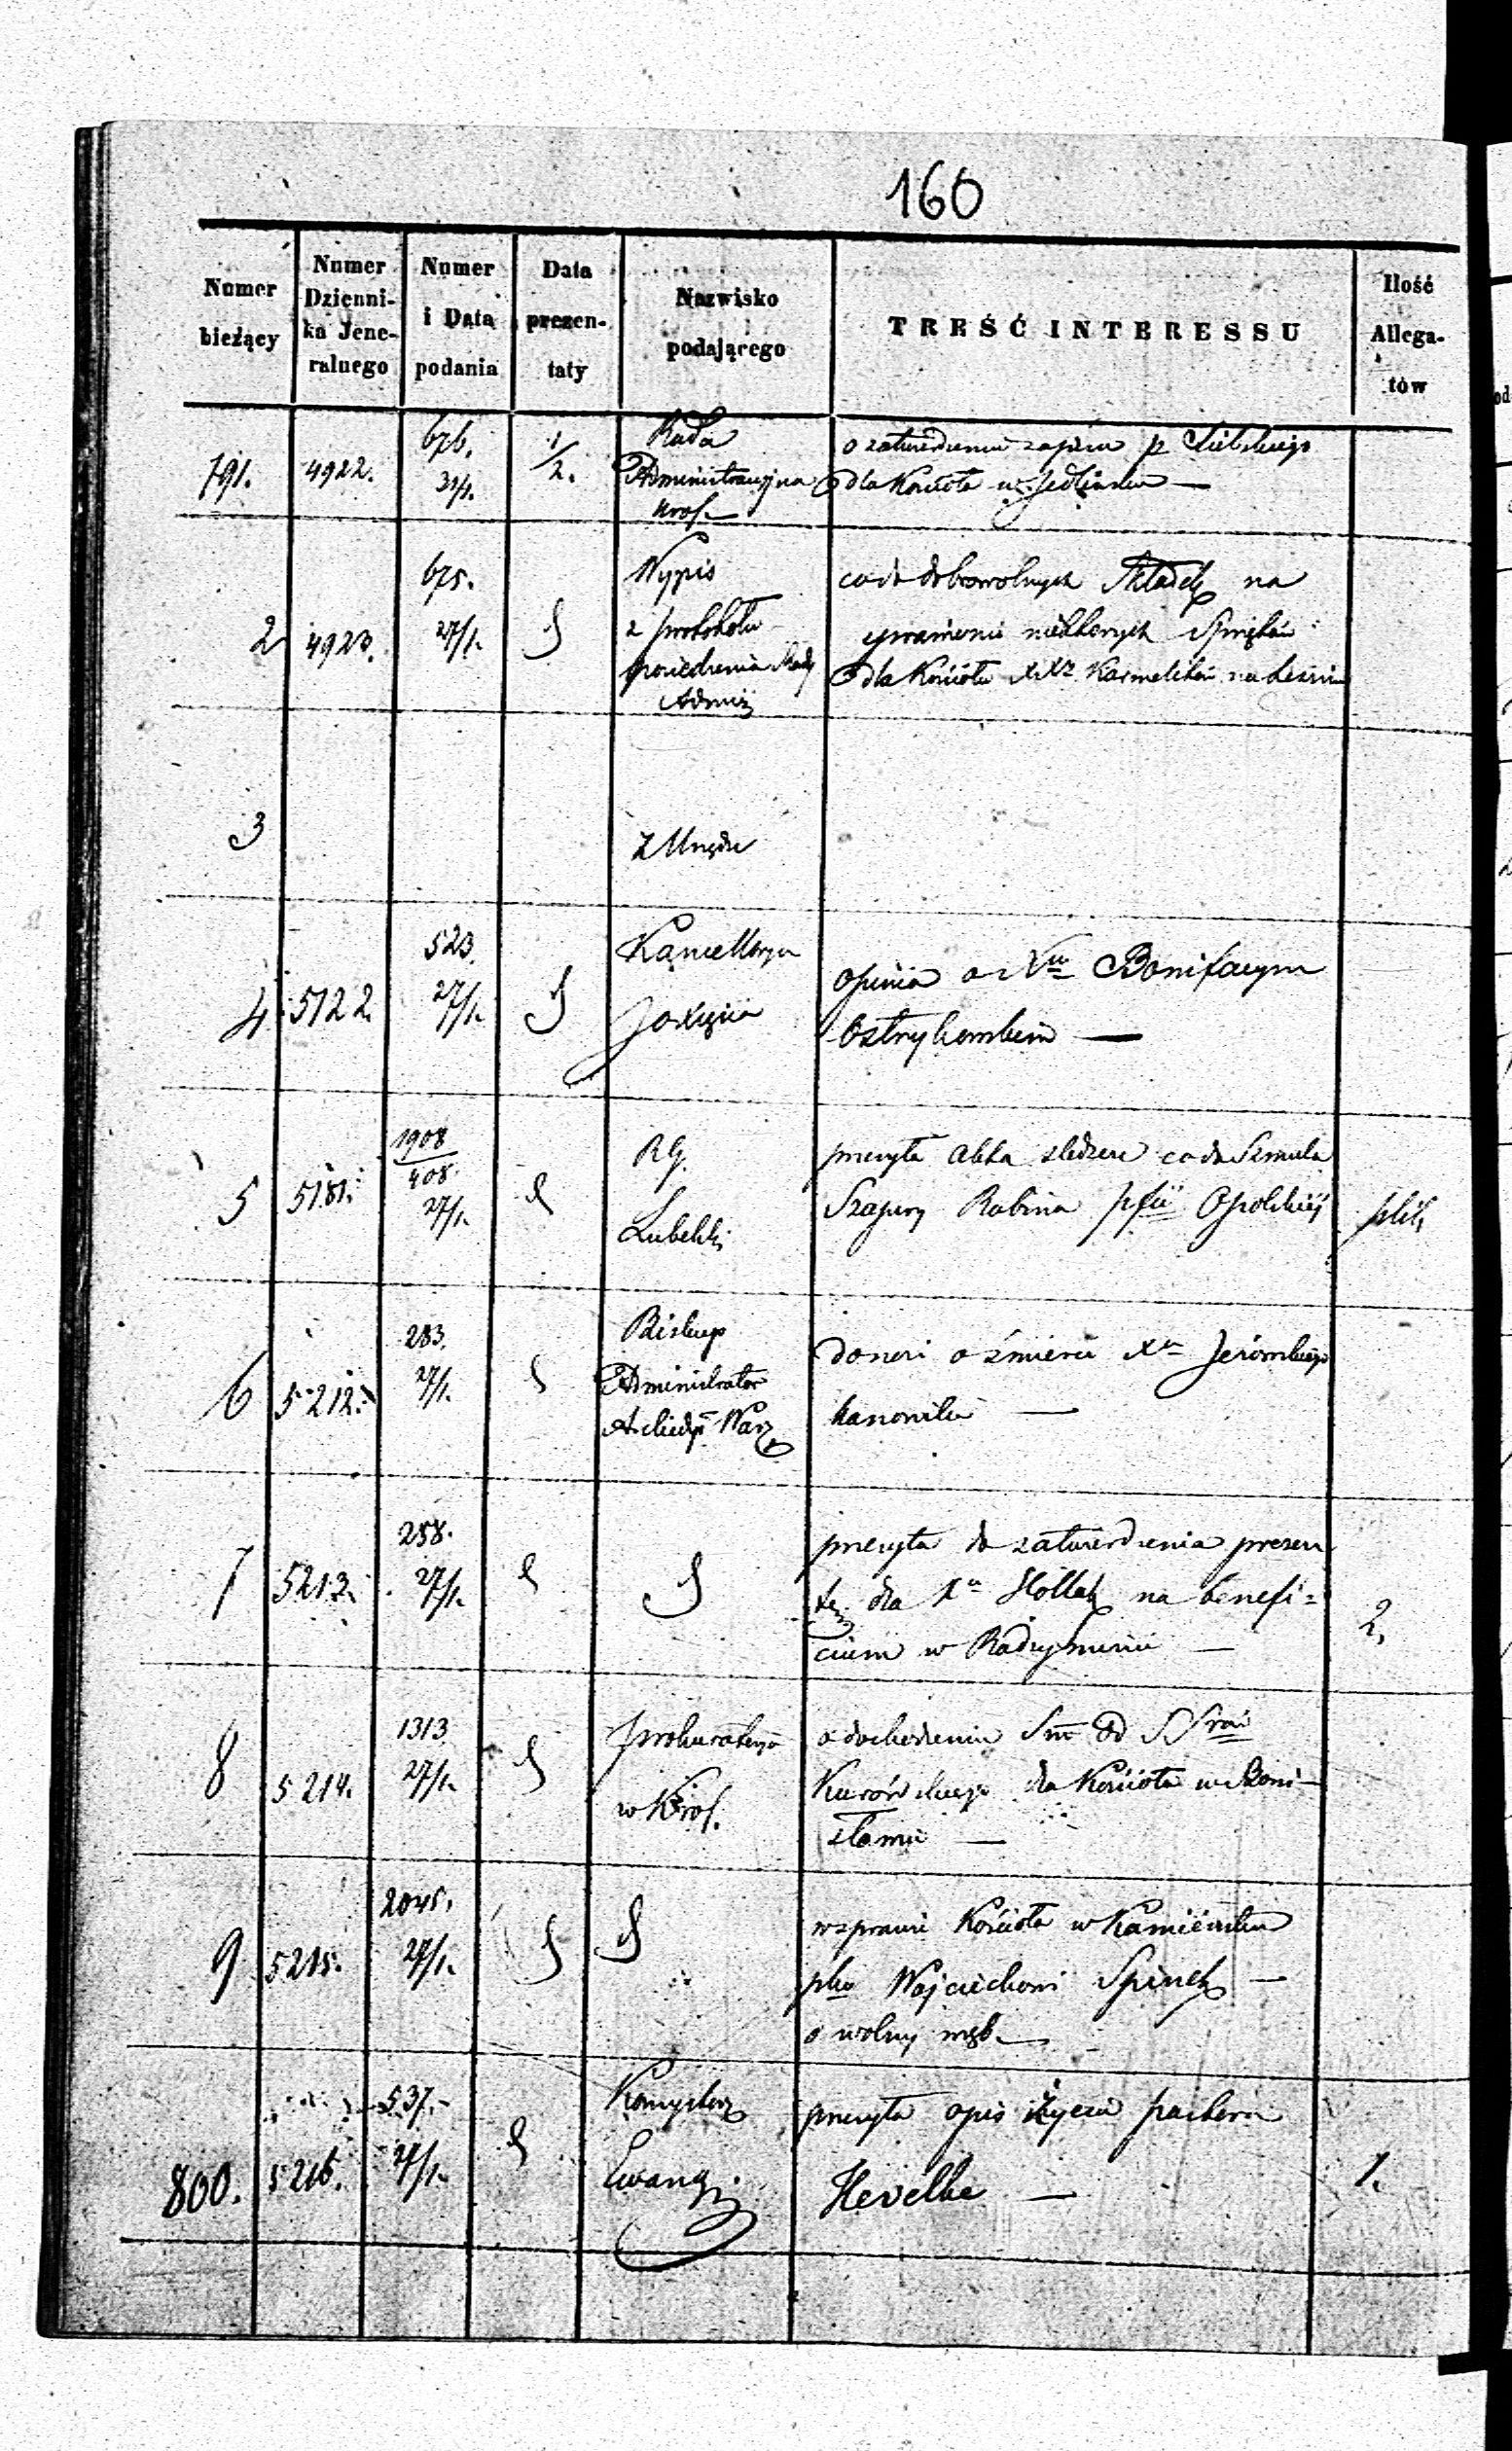 160
Numer bieżący
Numer Dzienni-ka Jene-ralnego
Numer i Data podania
Data prezen-taty
Nazwisko podającego
TREŚĆ INTERESSU
Ilość Allega-tów
791. 4922. 676. 31/1. 1/2.
Rada
Administracyjna
Krol.
o zatwierdzeniu zapisu
dla Kościoła w Jedlińsku —
2 4923. 675. 27/1.
Wypis
z protokołu
posiedzenia Rady
Admin
co do dobrowolnych Składek na
sprawienie niektorych Sprzętów
dla Kościoła XXz Karmelitów na Lesznie
3
Z Urzędu
4 5122. 523. 27/1.
Kancellarya
JO Xięcia
opinia o Bonifacym
Ostrykowskim —
5 5181. 1908/408. 27/1.
RG.
Lubelski
przesyła akta śledcze co do Szmula
Szapiry Rabina Opolskiéj
plik
6 5212. 283. 27/1.
Biskup
Administrator
Archidy Warz
donosi o śmierci Xa Jeziorskiego
kanonika —
7 5213. 258. 27/1.
przesyła do zatwierdzenia prezen
tę dla Xa Hollak na benefi=
cium w Radzyminie —
2,
8 5214. 1313 27/1.
Prokuratorya
w Krol.
o dochodzeniu Sm od SSrów
Kurowskiego dla Kościoła w Boni-
sławiu —
9 5215. 2045. 27/1.
w sprawie Kościoła w Kamieńsku
pko Wojciechowi Spinek —
o wolny wrąb.
800. 5216. 537. 27/1.
Konsystorz
Ewang.
przesyła opis życia pastora
Hevelke —
1.